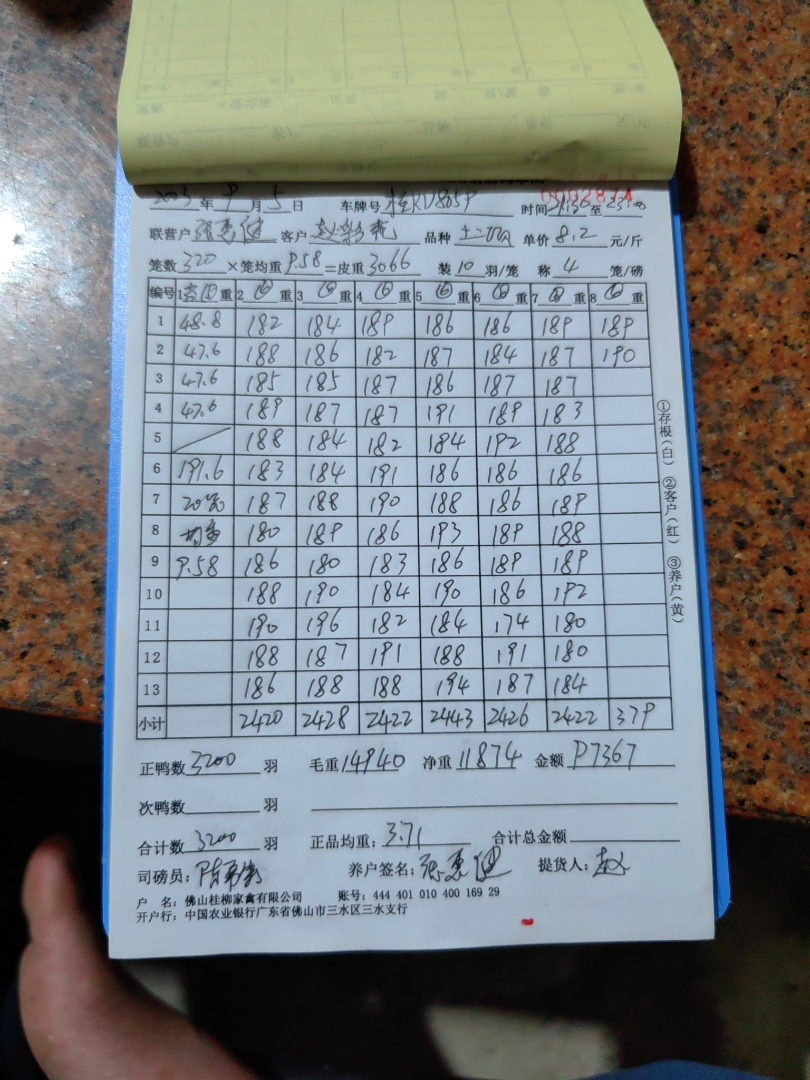 2023 年 9 月 5 日 车牌号 桂KD8659 时间 至 23:00
联营户 张惠健 客户 赵 品种 土二 单价 8.2 元/斤
笼数 320 ×笼均重 9.58 =皮重 3066 装 10 羽/笼 称 4 笼/磅
编号 1 重 2 重 3 重 4 重 5 重 6 重 7 重 8 重
1 48.8 182 184 189 186 186 189 189
2 47.6 188 186 182 187 184 187 190
3 47.6 185 185 187 186 187 187
4 47.6 189 187 187 191 189 183
5 188 184 182 184 192 188
6 191.6 183 184 191 186 186 186
7 20笼 187 188 190 188 186 189
8 均重 180 189 186 193 189 188
9 9.58 186 180 183 186 189 189
10 188 190 184 190 186 192
11 190 196 182 184 174 180
12 188 187 191 188 191 180
13 186 188 188 194 187 184
小计 2420 2428 2422 2443 2426 2422 379
正鸭数 3200 羽 毛重 14940 净重 11874 金额 97367
次鸭数 羽
合计数 3200 羽 正品均重: 3.71 合计总金额
司磅员: 陈 养户签名: 张惠健 提货人: 赵
户 名: 佛山桂柳家禽有限公司 账号: 444 401 010 400 169 29
开户行: 中国农业银行广东省佛山市三水区三水支行
①存根(白) ②客户(红) ③养户(黄)